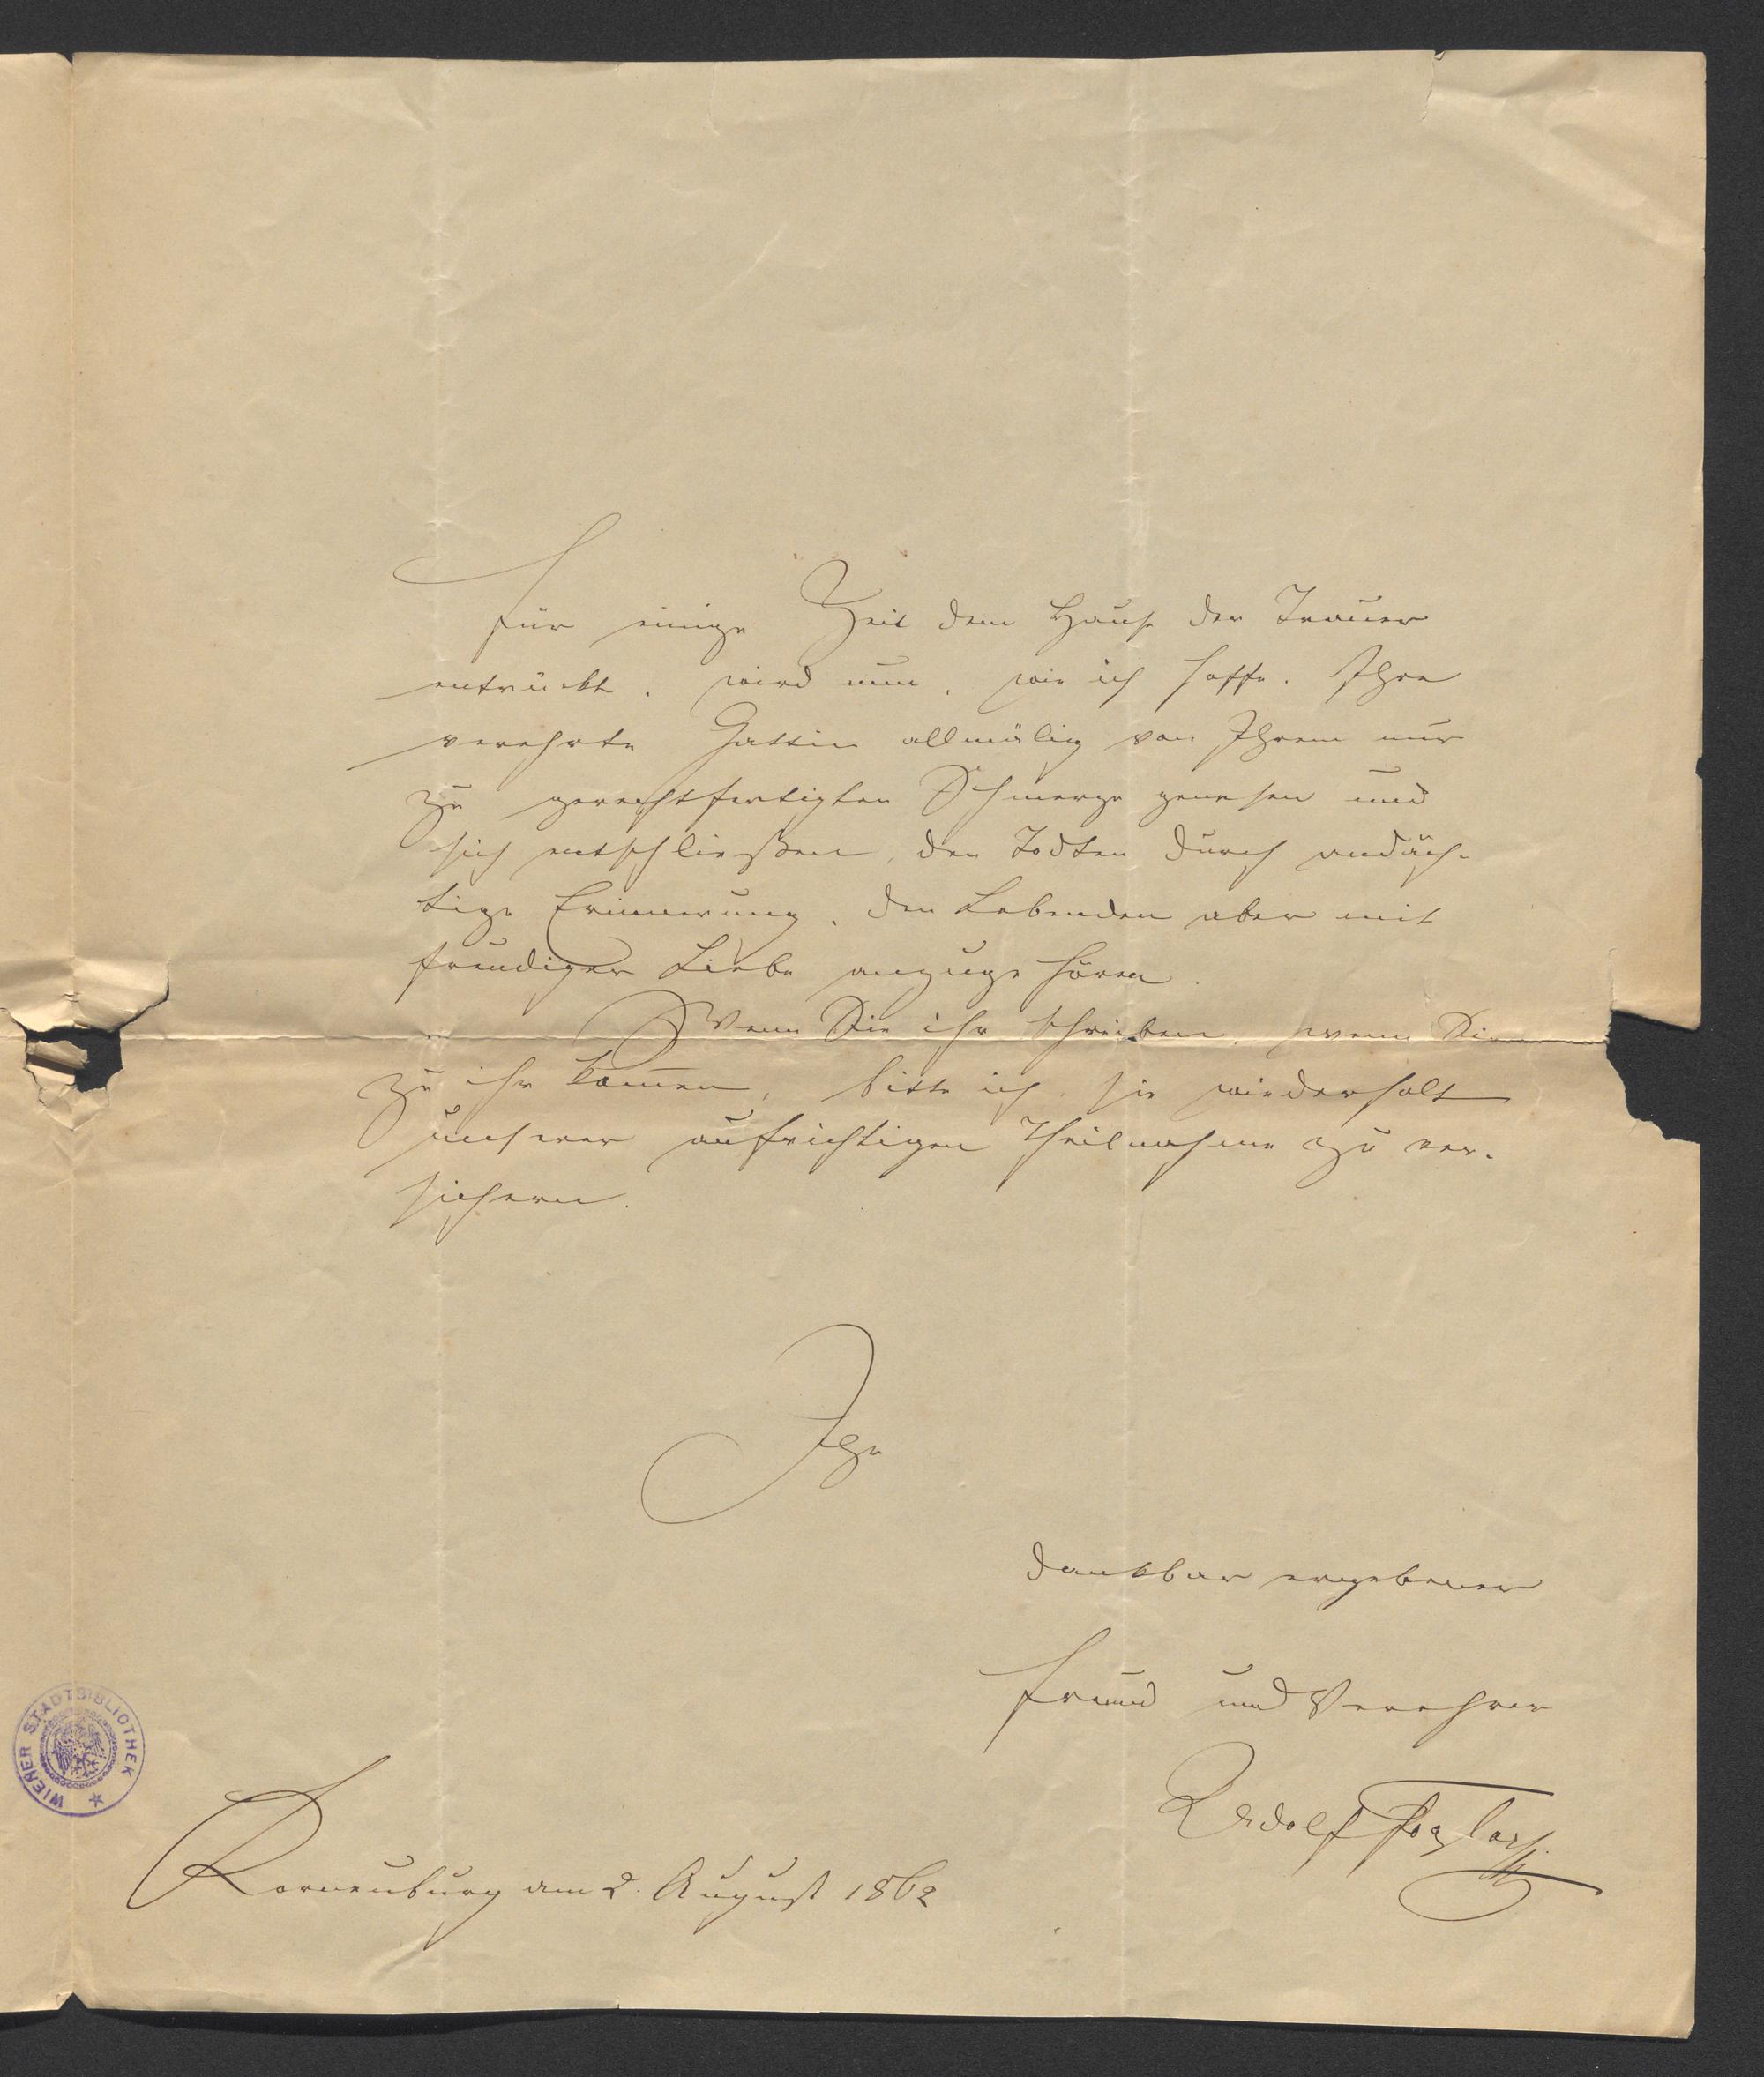 Für einige Zeit dem Hause der Trauer
entrückt, wird nun, wie ich hoffe, Ihre
verehrte Gattin allmälig von Ihrem nur
zu gerechtfertigten Schmerze genesen und
sich entschließen, den Todten durch andäch-
tige Erinnerung, den Lebenden aber mit
freudiger Liebe anzugehören.
Wenn Sie ihr schreiben, wenn Sie
zu ihr kommen, bitte ich, sie wiederholt
unserer aufrichtigen Theilnahme zu ver-
sichern.
Ihr
dankbar ergebener
Freund und Verehrer
Kornenburg am 2. August 1862
WIENER STADTBIBLIOTHEK